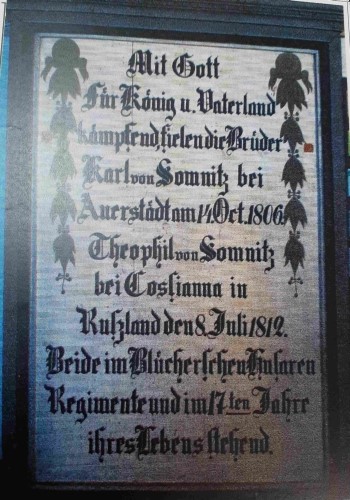 Mit Gott
Für König u. Vaterland
kämpfend, fielen die Brüder
Karl von Somnitz bei
Auerstädt am 14. Oct. 1806.
Theophil von Somnitz
bei Cossianna in
Ruszland den 8. Juli 1812.
Beide im Blücherschen Husaren
Regimente und im 17ten Jahre
ihres Lebens stehend.